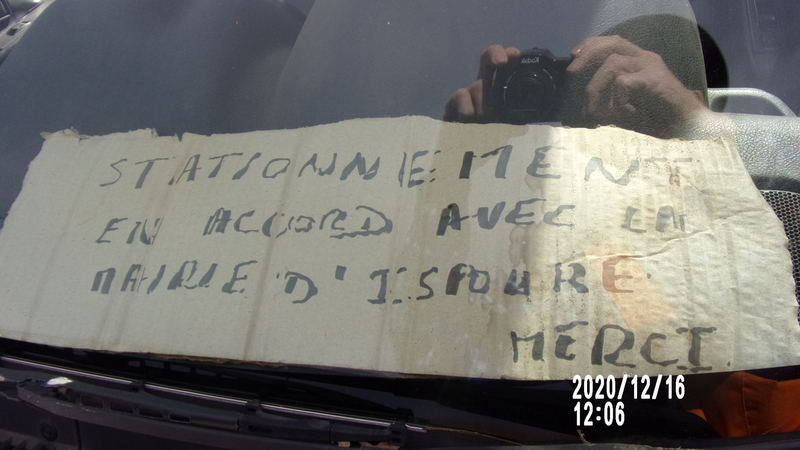 Kodak
STATIONNEMENT
EN ACCORD AVEC LA
MAIRIE D'ISPOURE
MERCI
2020/12/16
12:06